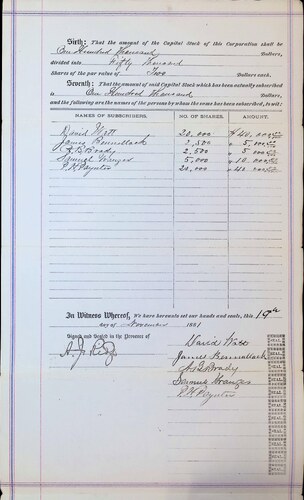 Sixth: That the amount of the Capital Stock of this Corporation shall be
One Hundred Thousand Dollars,
divided into Fifty Thousand
Shares of the par value of Two Dollars each.
Seventh: That the amount of said Capital Stock which has been actually subscribed
is One Hundred Thousand Dollars,
and the following are the names of the persons by whom the same has been subscribed, to wit:
NAMES OF SUBSCRIBERS. NO. OF SHARES. AMOUNT.
David 20,000 $ 40,000
James Bennallack 2,500 " 5,000
Brady 2,500 " 5,000
Samuel Granger 5,000 " 10,000
Poynter 20,000 " 40,000
In Witness Whereof, We have hereunto set our hands and seals, this 19th
day of November 1881
Signed and Sealed in the Presence of
David
James Bennallack
Brady
Samuel Granger
Poynter
SEAL
SEAL
SEAL
SEAL
SEAL
SEAL
SEAL
SEAL
SEAL
SEAL